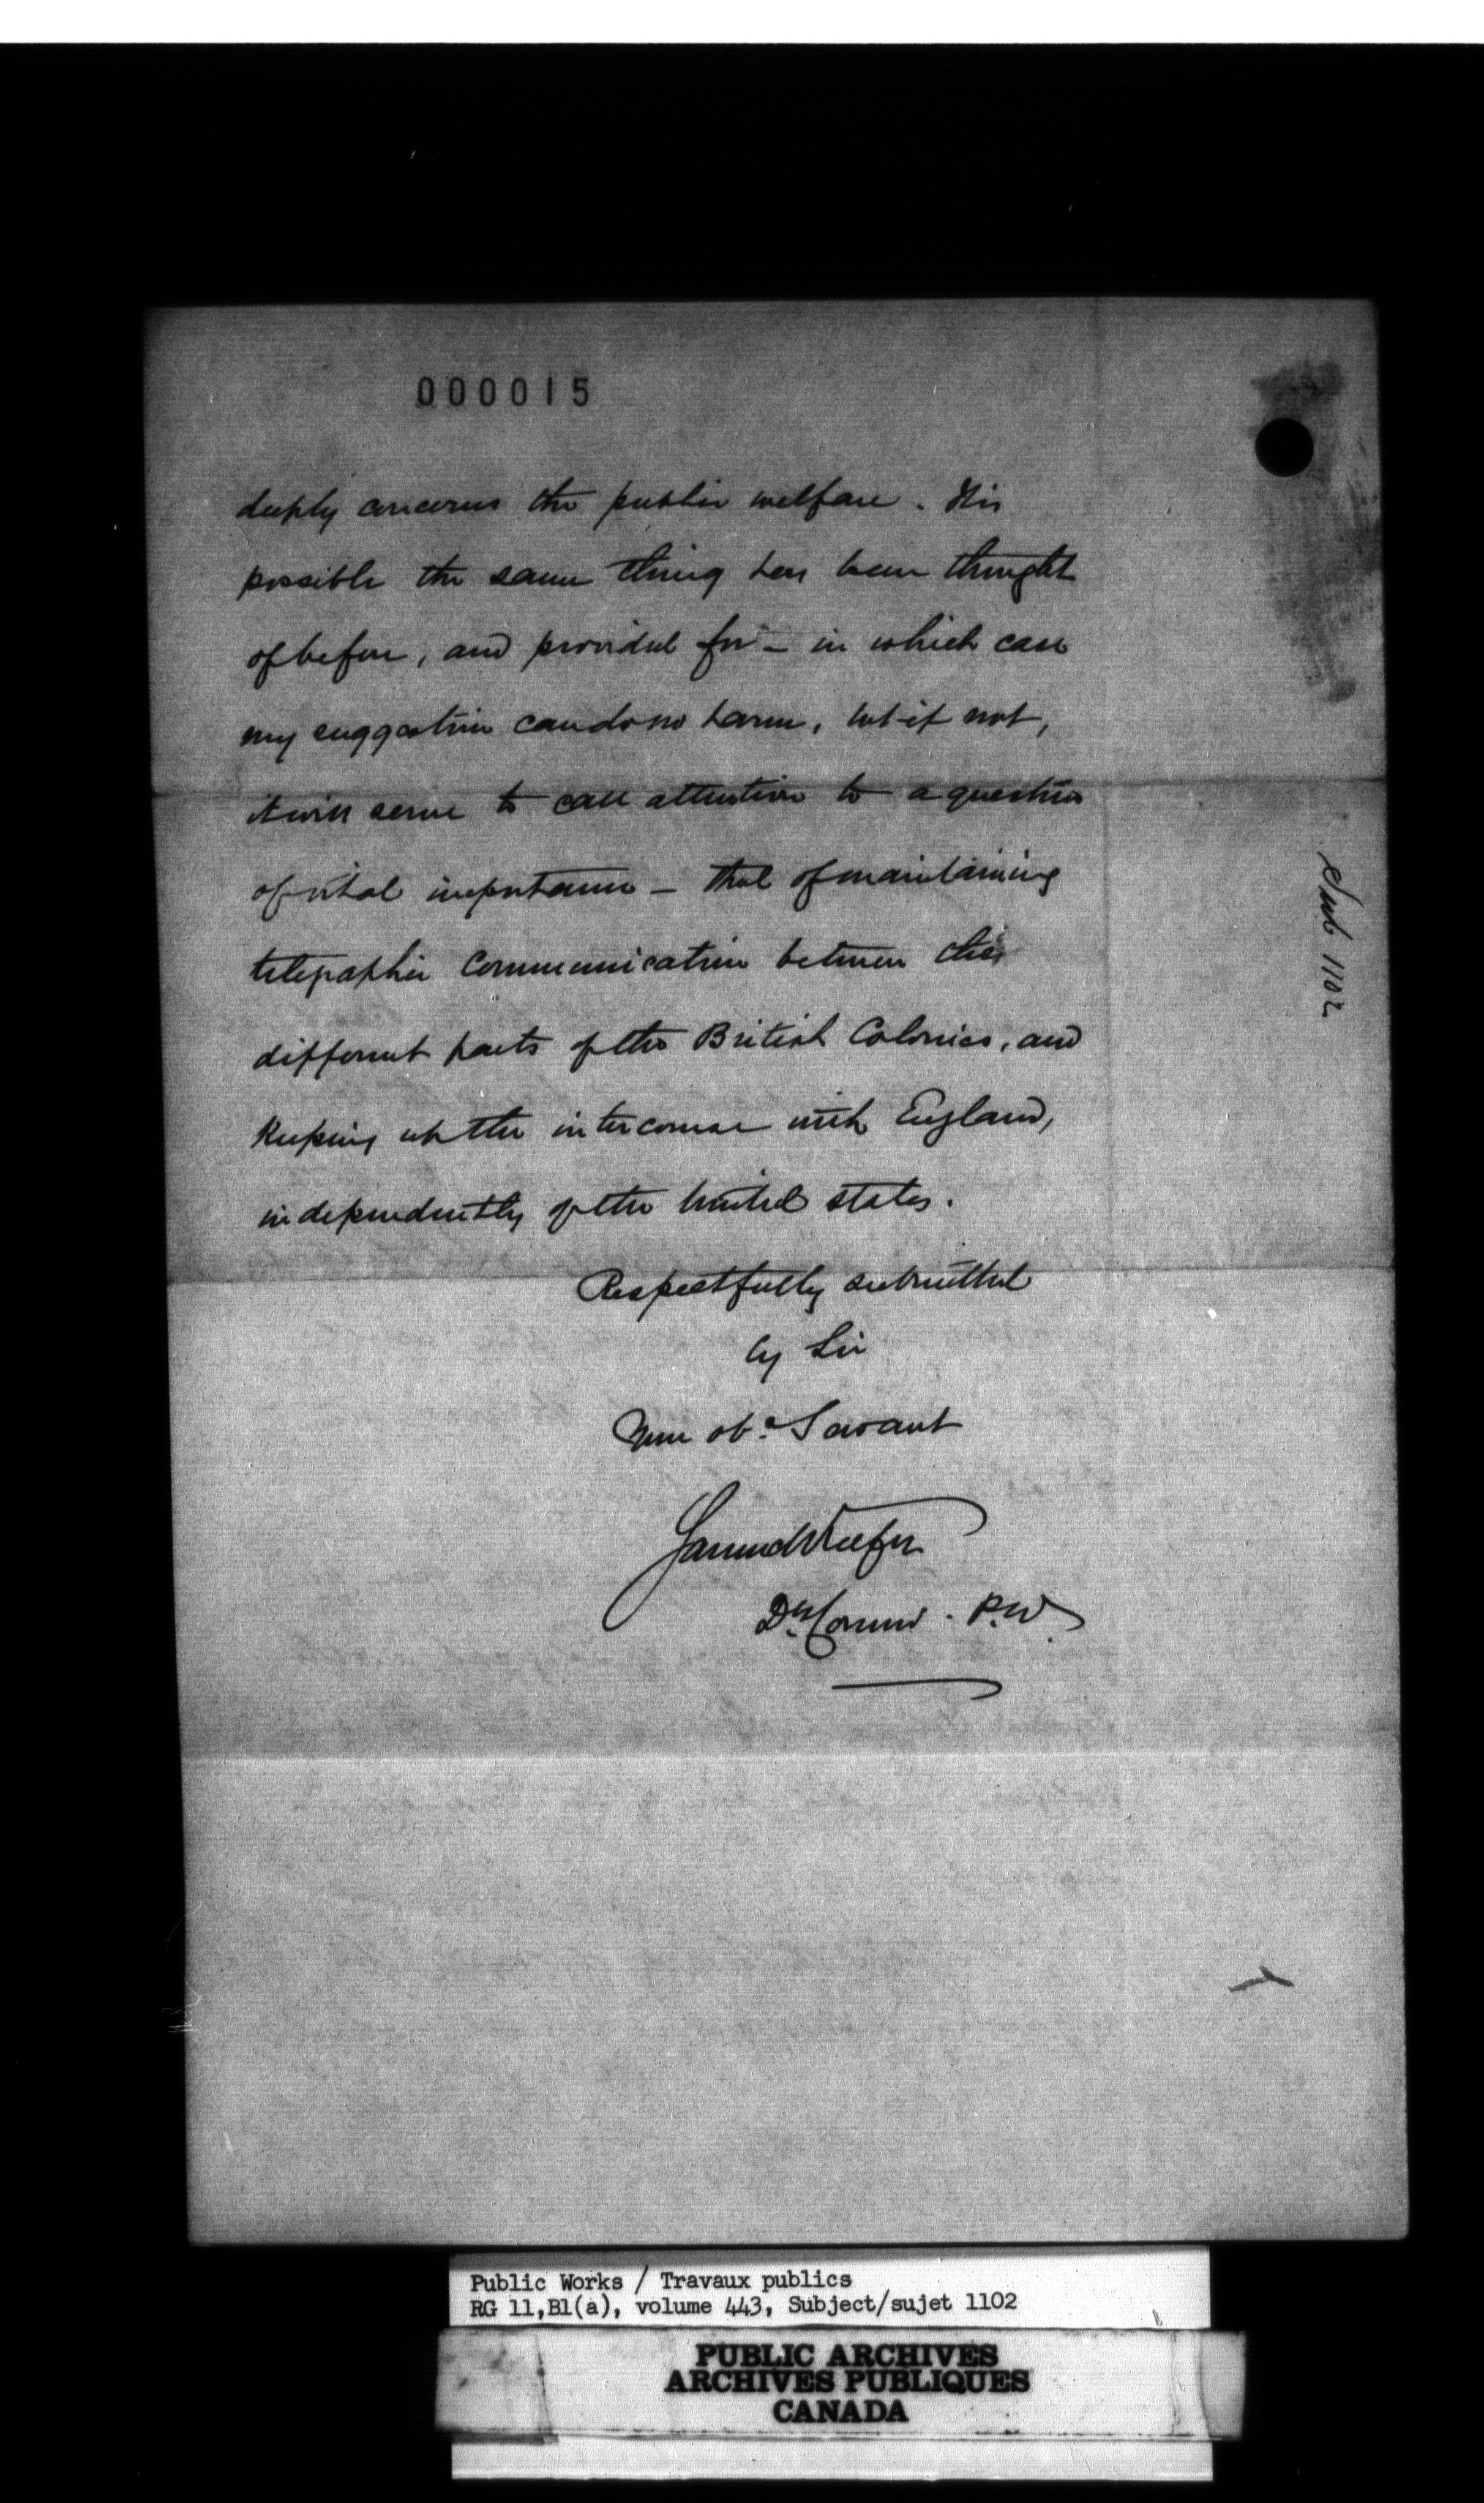 000015
deeply concerns the public welfare. It is
possible the same thing has been thought
of before, and provided for – in which case
my suggestion can do no harm, but if not,
it will serve to call attention to a question
of vital importance – that of maintaining
telegraphic communication between the
different parts of the British Colonies, and
keeping up the intercourse with England,
independently of the United States.
Respectfully submitted
by Sir
Your obt Servant
Samuel Keefer
Dy Commr. P.W.
Sub 1102
Public Works / Travaux publics
RG 11,B1(a), volume 443, Subject/sujet 1102
PUBLIC ARCHIVES
ARCHIVES PUBLIQUES
CANADA